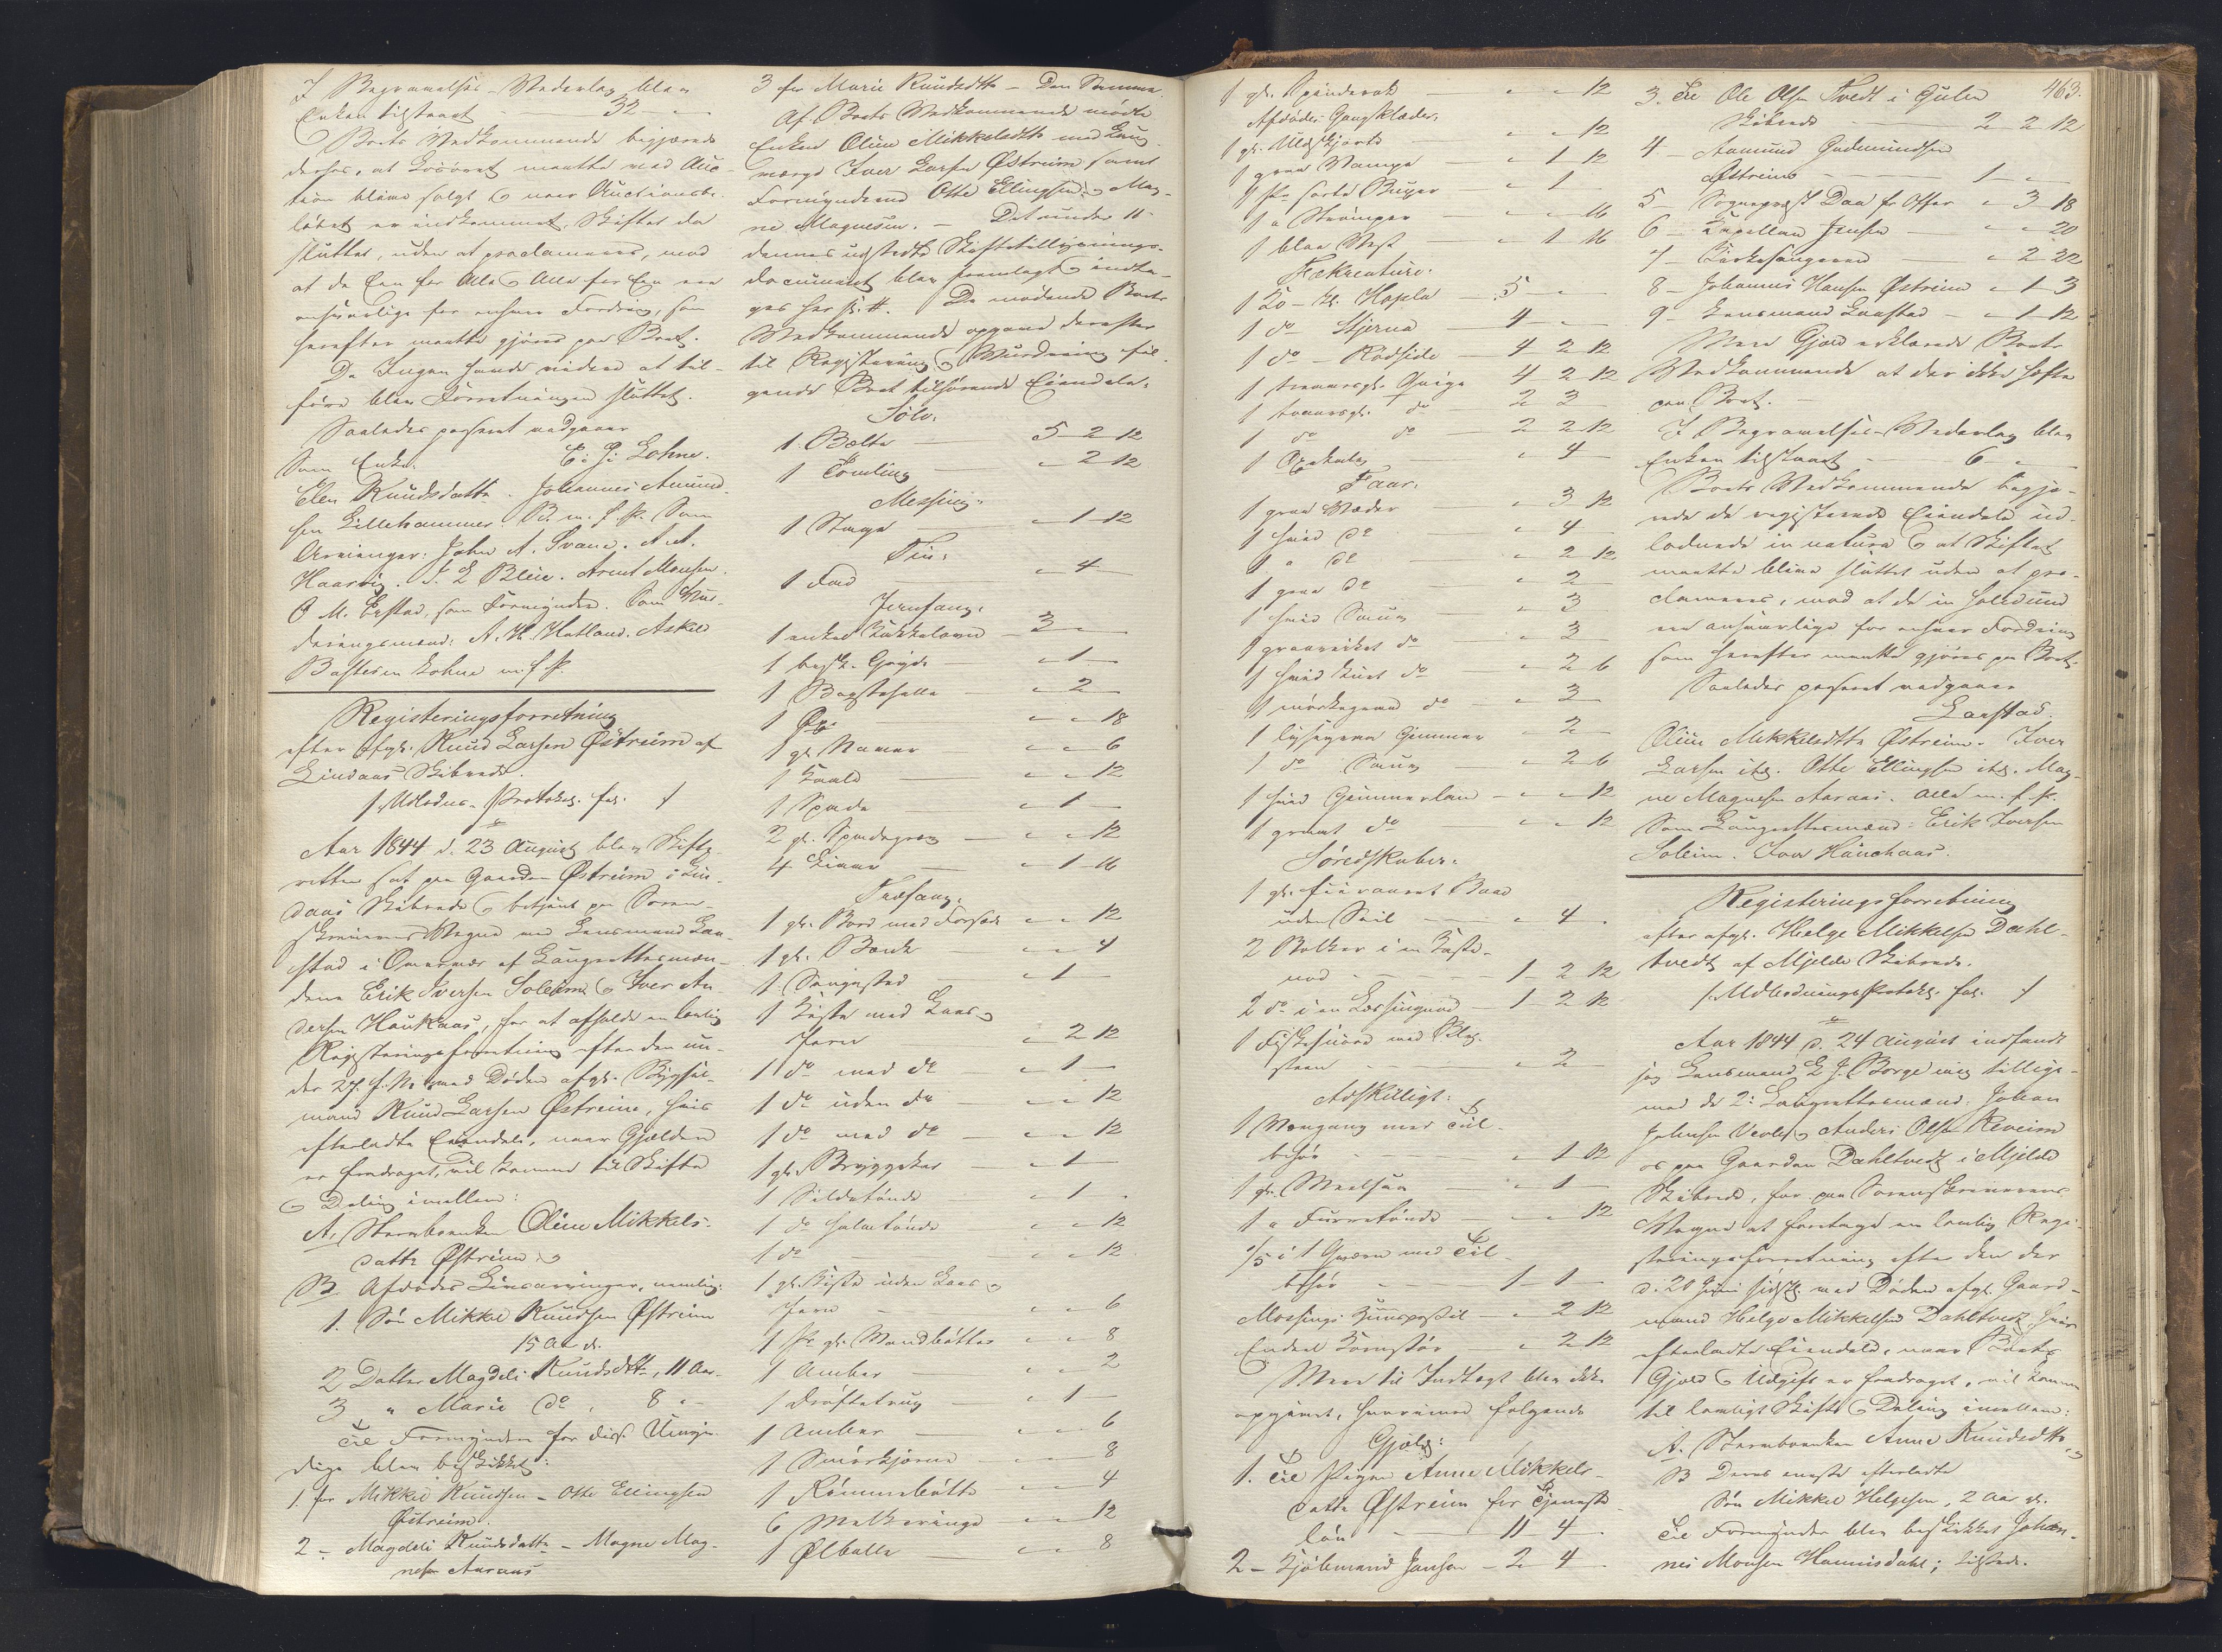 I Begravelses-Vederlag blev
Enken tilstaaet - 32 - „
Boets Vedkommende begjærede
derhos, at Løsøret maatte ved Auc-
tion blive solgt og naar Auctionsbe-
løbet er indkommet, Skiftet da
sluttes, uden at proclameres, mod
at de Een for Alle og Alle for Een ere
ansvarlige for enhver Fordring, som
herefter maatte gjøres paa Boet.
Da Ingen havde videre at til-
føre blev Forretningen sluttet.
Saaledes passeret vedgaaer
Som Enke: E: J: Lohne.
Elen Knudsdatter. Johannes Amund-
sen Lillehammer. B. m. f. P. Som
Arvinger: John A. Svane. A. A.
Haarvig. J. L Bleie. Arent Monsen.
O M. Erstad, som Formynder. Som Vur-
deringsmænd: A. H. Hatland. Askeld
Bastesen Lohne m. f. P.
Registeringsforretning
efter afgl. Knud Larsen Østreim af
Lindaas Skibrede.
/: Udlodns-Protokol. fol. :/
Aar 1844 d. 23 August blev Skifte-
retten sat paa Gaarden Østreim i Lin-
daas Skibrede og betjent paa Soren-
skriverens Vegne ved Lensmand Lan-
stad i Overvær af Laugrettesmæn-
dene Erik Iversen Soleim og Iver An-
dersen Haukaas, for at afholde en lovlig
Registeringsforretning efter den un-
der 27. f. M. ved Døden afgl. Bygsel-
mand Knud Larsen Østreim, hvis
efterladte Eiendele, naar Gjælden
er fradraget, vil komme til Skifte
og Deling imellem:
A, Stervboenken Oline Mikkels-
datter Østreim og
B Afdødes Livsarvinger, nemlig:
1. Søn Mikkel Knudsen Østreim
15 Aar gl.
2 Datter Magdeli Knudsdtr., 11 Aar
3 „ Marie do , 8 „ -
Til Formynder for disse Umyn-
dige blev beskikket:
1. for Mikkel Knudsen - Otte Ellingsen
Østreim.
2 - Magdeli Knudsdatter - Magne Mag-
nesen Aaraas
3 for Marie Knudsdtr - Den Samme.
Af Boets Vedkommende mødte
Enken Oline Mikkelsdtr med Laug-
værge Iver Larsen Østreim samt
Formynderne Otte Ellingsen og Mag-
ne Magnesen. - Det under 11
dennes udstedte Skiftetillysnings-
document blev fremlagt og indta-
ges her sl. #. De mødende Boets
Vedkommende opgave derefter
til Registering og Vurdering føl-
gende Boet tilhørende Eiendele.
Sølv.
1. Bælte - 5 - 2 - 12
1 Tømling - „ - 2 - 12
Messing:
1 Stage - „ - 1 - 12
Tin:
1 Fad - „ - 4 -
Jernfang.
1 enkel Kakkelovn - 3 - „ -
1 besk. Gryde - „ - 1 -
1 Bagstehelle - „ - 2 -
1 Øxe - „ - „ - 18
1 gl. Naver - „ - „ - 6
1 Saald - „ - „ - 12
1 Spade - „ - 1 -
2 gl. Spadegrev - „ - „ - 12
4 Liaaer - „ - 1 - 16
Træfang.
1 gl. Bord med Forsæde - „ - „ - 12
1 gl. Bænk - „ - „ - 4
1 Sengested - „ - 1 -
1 Kiste med Laas og
Jern - „ - 2 - 12
1 do med do - „ - 1 -
1 do uden do - „ - „ - 12
1 do med do - „ - „ - 12
1 gl. Bryggekar - „ - 1 -
1 Sildetønde - „ - 1 -
1 do halvtønde - „ - „ - 12
1 do - „ - „ - 12
1 gl. Kiste uden Laas og
Jern - „ - „ - 6
1 Pr gl. Vandbøtter - „ - „ - 8
1 Ambar - „ - „ - 2
1 Drøftetrug - „ - 1 -
1 Ambar - „ - „ - 6
1 Smørkjerne - „ - „ - 8
1 Rømmebøtte - „ - „ - 4
6 Melkeringe - „ - „ - 12
1 Ølbolle - „ - „ - 8
1 gl. Spinderok - „ - „ - 12
Afdødes Gangklæder.
1 gl. Uldskjorte - „ - „ - 12
1 graa Vampe - „ - 1 - 12
1 Pr sorte Buxer - „ - 1 -
1 „ Strømper - „ - „ - 16
1 blaa Vest - „ - 1 - 16
Fækreature.
1 Ko - kl. Hopla - 5 - „ -
1 do Stjerna - 4 - „ -
1 do - Rødside - 4 - 2 - 12
1 treaarsgl. Qvige - 4 - 2 - 12
1 toaarsgl. do - 2 - 3 -
1 do do - 2 - 2 - 12
1 Oxekalv - „ - 4 -
Faar.
1 graa Væder - „ - 3 - 12
1 hvid do - „ - 4 -
1 „ do - „ - 2 - 12
1 graa do - „ - 2 -
1 hvid Souv - „ - 3 -
1 graaveiket do - „ - 3 -
1 hvid liden do - „ - 2 - 6
1 mørkegraa do - „ - 3 -
1 lysegraa Gimmer - „ - 2 -
1 do Souv - „ - 2 - 6
1 hvid Gimmerlam - „ - „ - 12
1 graat do - „ - „ - 12
Søredskaber.
1 gl. fiiraaret Baad
uden Seil - „ - 4 -
2 Bolker i en Kaste-
nod - 1 - 2 - 12
2 do i en Læssingnod - 1 - 2 - 12
1 Fiskesnøre med Blog-
steen - „ - 2 -
Adskilligt:
1 Vævgang med Til-
behør - „ - 1 - 12
1 gl. Meelskee - „ - 1 -
1 „ Furretønde - „ - „ - 12
1/5 i 1 Qværn med Til-
behør - 1 - 1 -
Messings Huuspostil - „ - 2 - 12
Endeel Kornstør - „ - 2 - 12
Mere til Indtægt blev ikke
opgivet, hvorimod følgende
Gjæld:
1. Til Pigen Anne Mikkels-
datter Østreim for Tjeneste-
løn - 11 - 4 -
2 - Kjøbmand Jansen - 2 - 4
463.
3. Til Ole Olsen Tvedt i Gulen
Skibrede - 2 - 2 - 12
4 - Aamund Gudmundsen
Østreim - 1 - „ -
5 - Sognepræst Daae for Offer - „ - 3 - 18
6 - Kapellan Jensen - „ - „ - 20
7 - Kirkesangeren - „ - 2 - 22
8 - Johannes Hansen Østreim - „ - 1 - 3
9 - Lensmand Lanstad - „ - 1 - 12
Mere Gjæld erklærede Boets
Vedkommende at der ikke hæfte
paa Boet. -
I Begravelses-Vederlag blev
Enken tilstaaet - 6 - „ -
Boets Vedkommende begjæ-
rede de registerede Eiendele ud-
lodnede in natura og at Skiftet
maatte blive sluttet uden at pro-
clameres, mod at de in solidum
ere ansvarlige for enhver Fordring
som herefter maatte gjøres paa Boet.
Saaledes passeret vedgaaer
Lanstad.
Oline Mikkelsdtr Østreim. Iver
Larsen ibd. Otte Ellingsen ibd. Mag-
ne Magnesen Aaraas. Alle m. f. P.
Som Laugrettesmænd: Erik Iversen
Soleim. Iver Hauchaas.
Registeringsforretning
efter afgl. Helge Mikkelsen Dahl-
tvedt af Mjelde Skibrede.
/: Udlodnings Protokol. fol. :/
Aar 1844 d. 24 August indfandt
jeg Lensmand E J. Borge mig tillige-
med de 2: Laugrettesmænd: Johan
Johnsen Vevle og Anders Olsen Reveim
os paa Gaarden Dahltvedt i Mjelde
Skibrede, for paa Sorenskriverens
Vegne at foretage en lovlig Regi-
steringsforretning efter den der
d. 20 Juni sidstl. ved Døden afgl. Gaard-
mand Helge Mikkelsen Dahltvedt, hvis
efterladte Eiendele, naar Boets
Gjæld og Udgift er fradraget, vil komme
til lovligt Skifte og Deling imellem:
A. Stervboenken Anne Knudsdtr og
B Deres eneste efterladte
Søn Mikkel Helgesen, 2 Aar gl.
Til Formynder blev beskikket Johan-
nes Monsen Hannisdahl; tilstede.